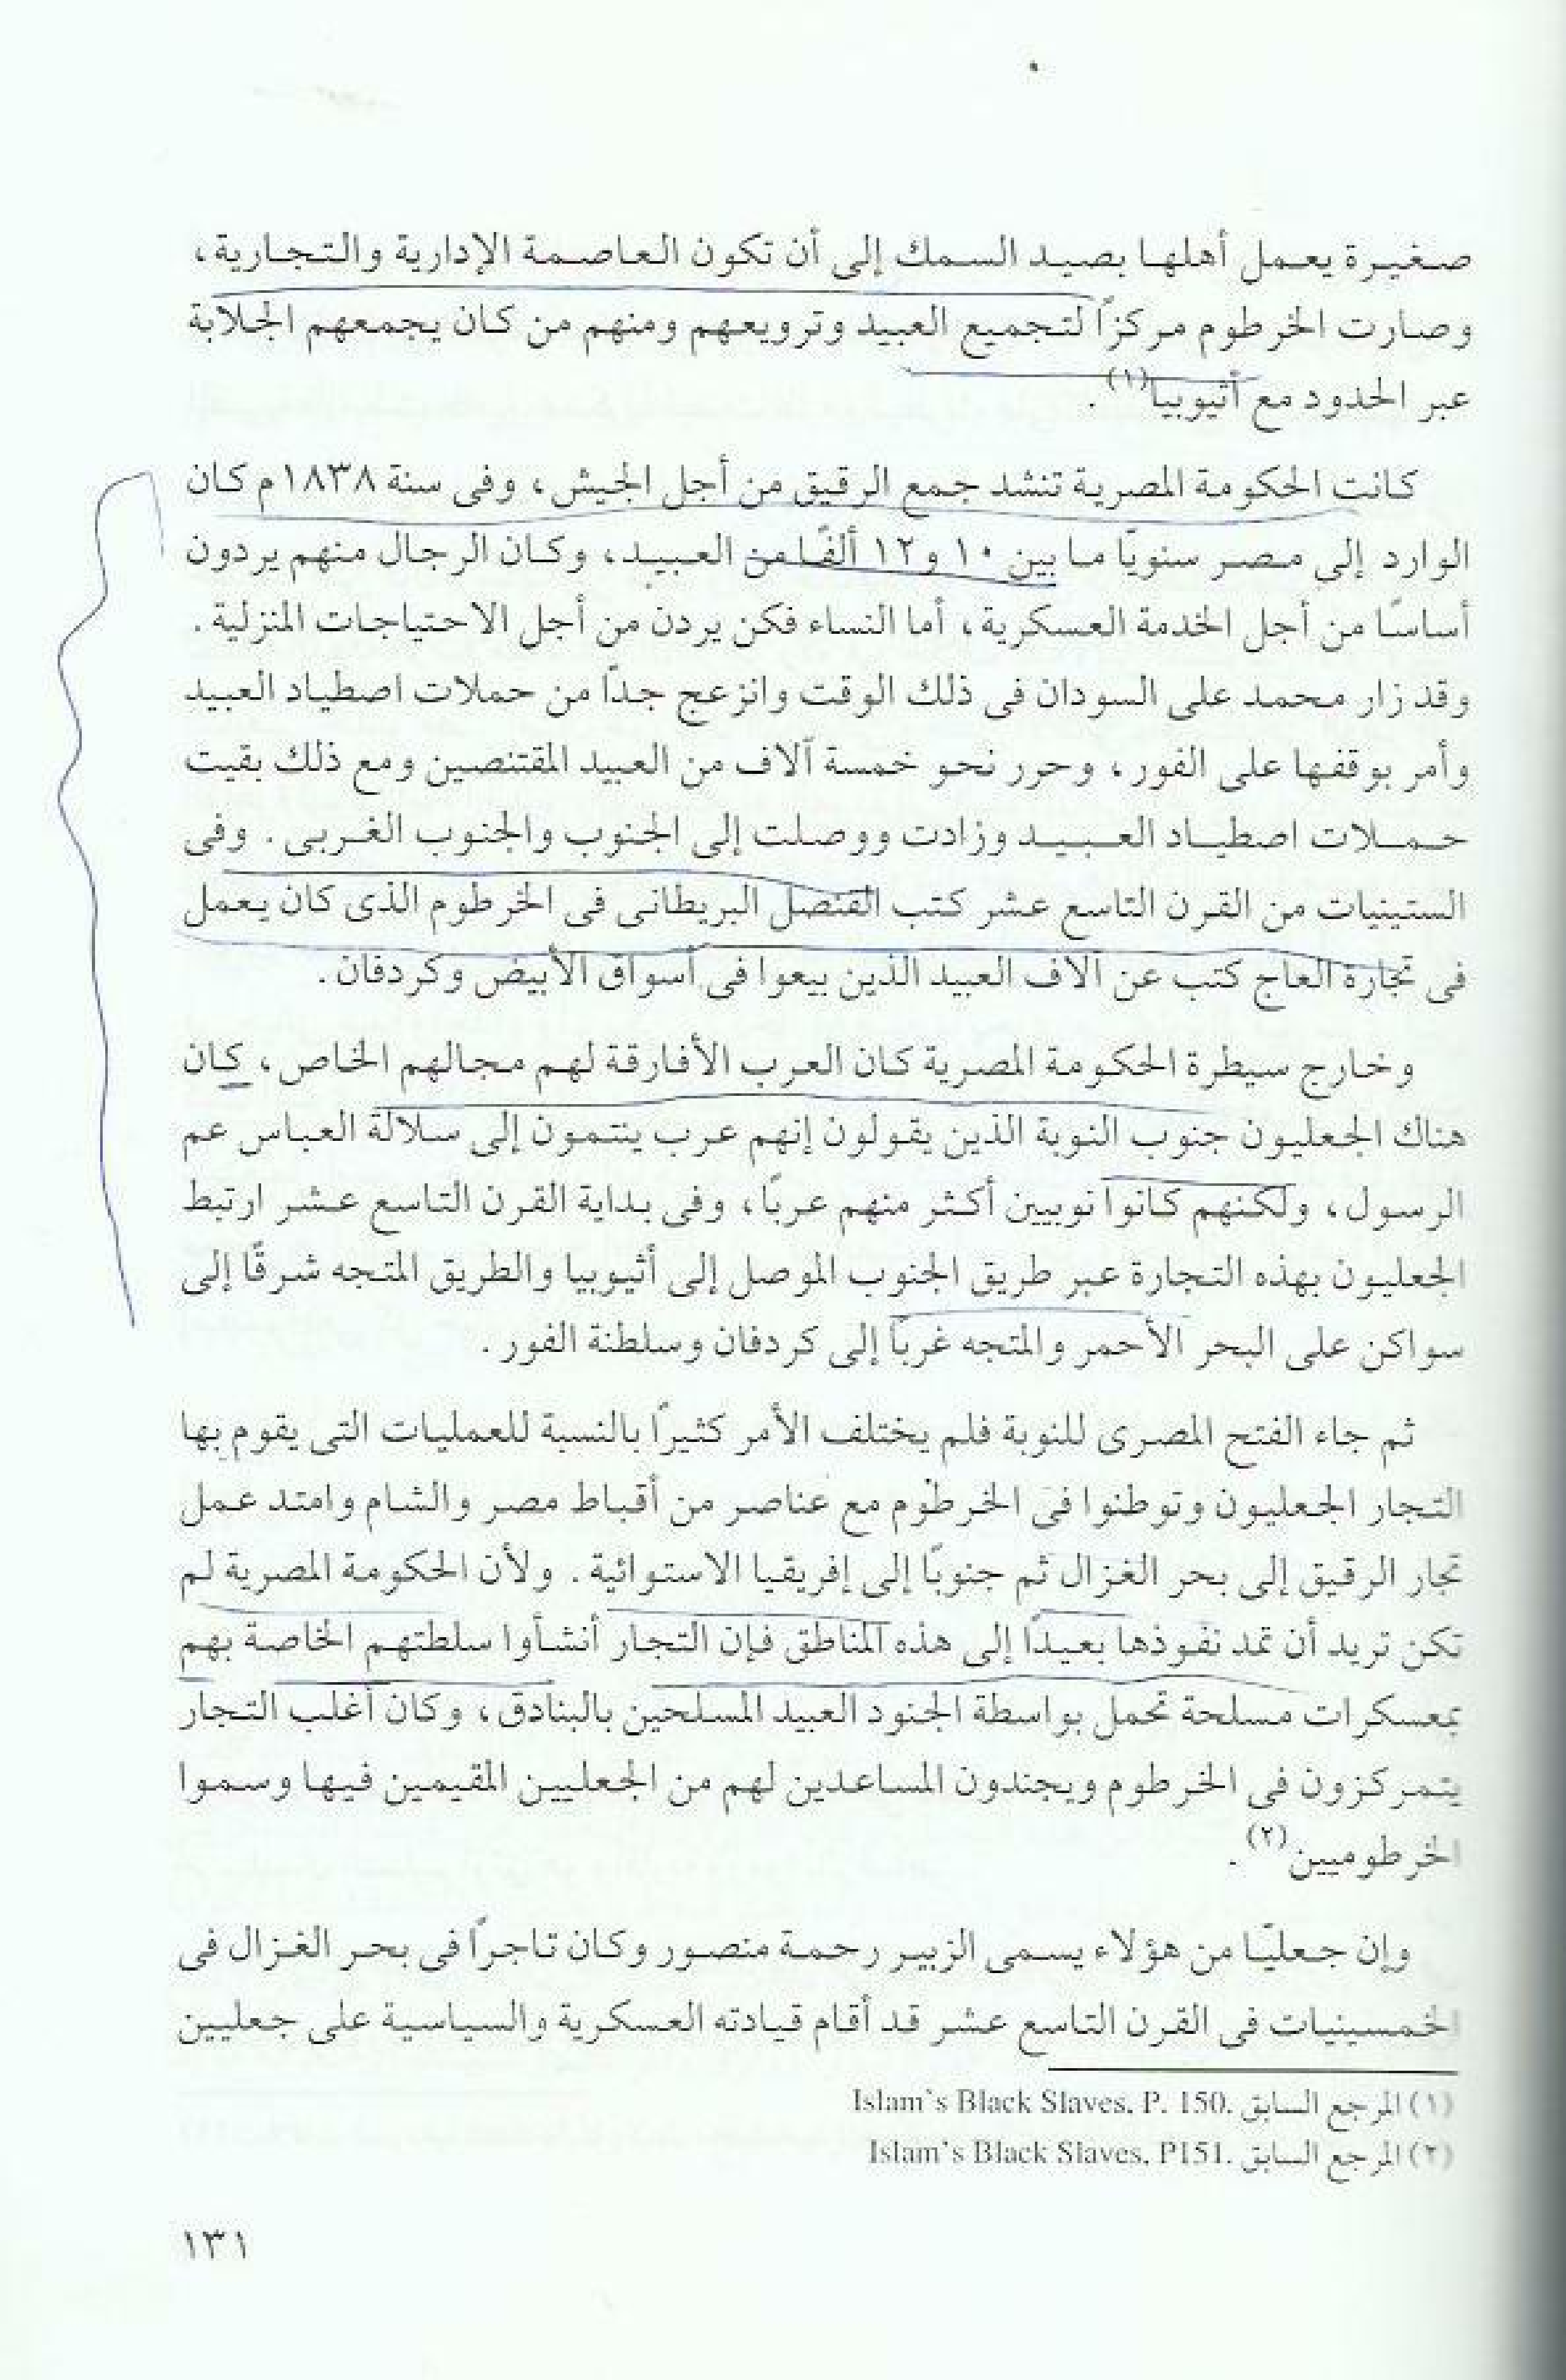 صغيرة يعمل أهلها بصيد السمك إلى أن تكون العاصمة الإدارية والتجارية،
وصارت الخرطوم مركزاً لتجميع العبيد وترويعهم ومنهم من كان يجمعهم الجلابة
عبر الحدود مع أثيوبيا(١).
كانت الحكومة المصرية تنشد جمع الرقيق من أجل الجيش، وفى سنة ١٨٣٨م كان
الوارد إلى مصر سنويًا ما بين ١٠ و١٢ ألفًا من العبيد، وكان الرجال منهم يردون
أساسًا من أجل الخدمة العسكرية، أما النساء فكن يردن من أجل الاحتياجات المنزلية.
وقد زار محمد على السودان فى ذلك الوقت وانزعج جداً من حملات اصطياد العبيد
وأمر بوقفها على الفور، وحرر نحو خمسة آلاف من العبيد المقتنصين ومع ذلك بقيت
حملات اصطياد العبيد وزادت ووصلت إلى الجنوب والجنوب الغربى. وفى
الستينيات من القرن التاسع عشر كتب القنصل البريطانى فى الخرطوم الذى كان يعمل
فى تجارة العاج كتب عن آلاف العبيد الذين بيعوا فى أسواق الأبيض وكردفان.
وخارج سيطرة الحكومة المصرية كان العرب الأفارقة لهم مجالهم الخاص، كان
هناك الجعليون جنوب النوبة الذين يقولون إنهم عرب ينتمون إلى سلالة العباس عم
الرسول، ولكنهم كانوا نوبيين أكثر منهم عربًا، وفى بداية القرن التاسع عشر ارتبط
الجعليون بهذه التجارة عبر طريق الجنوب الموصل إلى أثيوبيا والطريق المتجه شرقًا إلى
سواكن على البحر الأحمر والمتجه غربًا إلى كردفان وسلطنة الفور.
ثم جاء الفتح المصرى للنوبة فلم يختلف الأمر كثيراً بالنسبة للعمليات التى يقوم بها
التجار الجعليون وتوطنوا فى الخرطوم مع عناصر من أقباط مصر والشام وامتد عمل
تجار الرقيق إلى بحر الغزال ثم جنوبًا إلى إفريقيا الاستوائية. ولأن الحكومة المصرية لم
تكن تريد أن تمد نفوذها بعيداً إلى هذه المناطق فإن التجار أنشأوا سلطتهم الخاصة بهم
بمعسكرات مسلحة تحمل بواسطة الجنود العبيد المسلحين بالبنادق، وكان أغلب التجار
يتمركزون فى الخرطوم ويجندون المساعدين لهم من الجعليين المقيمين فيها وسموا
الخرطوميين(٢).
وإن جعليًا من هؤلاء يسمى الزبير رحمة منصور وكان تاجراً فى بحر الغزال فى
الخمسينيات فى القرن التاسع عشر قد أقام قيادته العسكرية والسياسية على جعليين
(١) المرجع السابق .Islam`s Black Slaves, P. 150
(٢) المرجع السابق .Islam`s Black Slaves, P151
١٣١